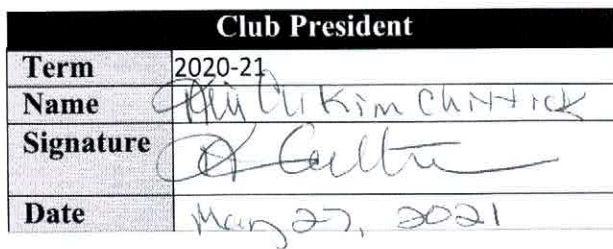 Club President
Term 2020-21
Name Kim Chittick
Signature
Date May 27, 2021